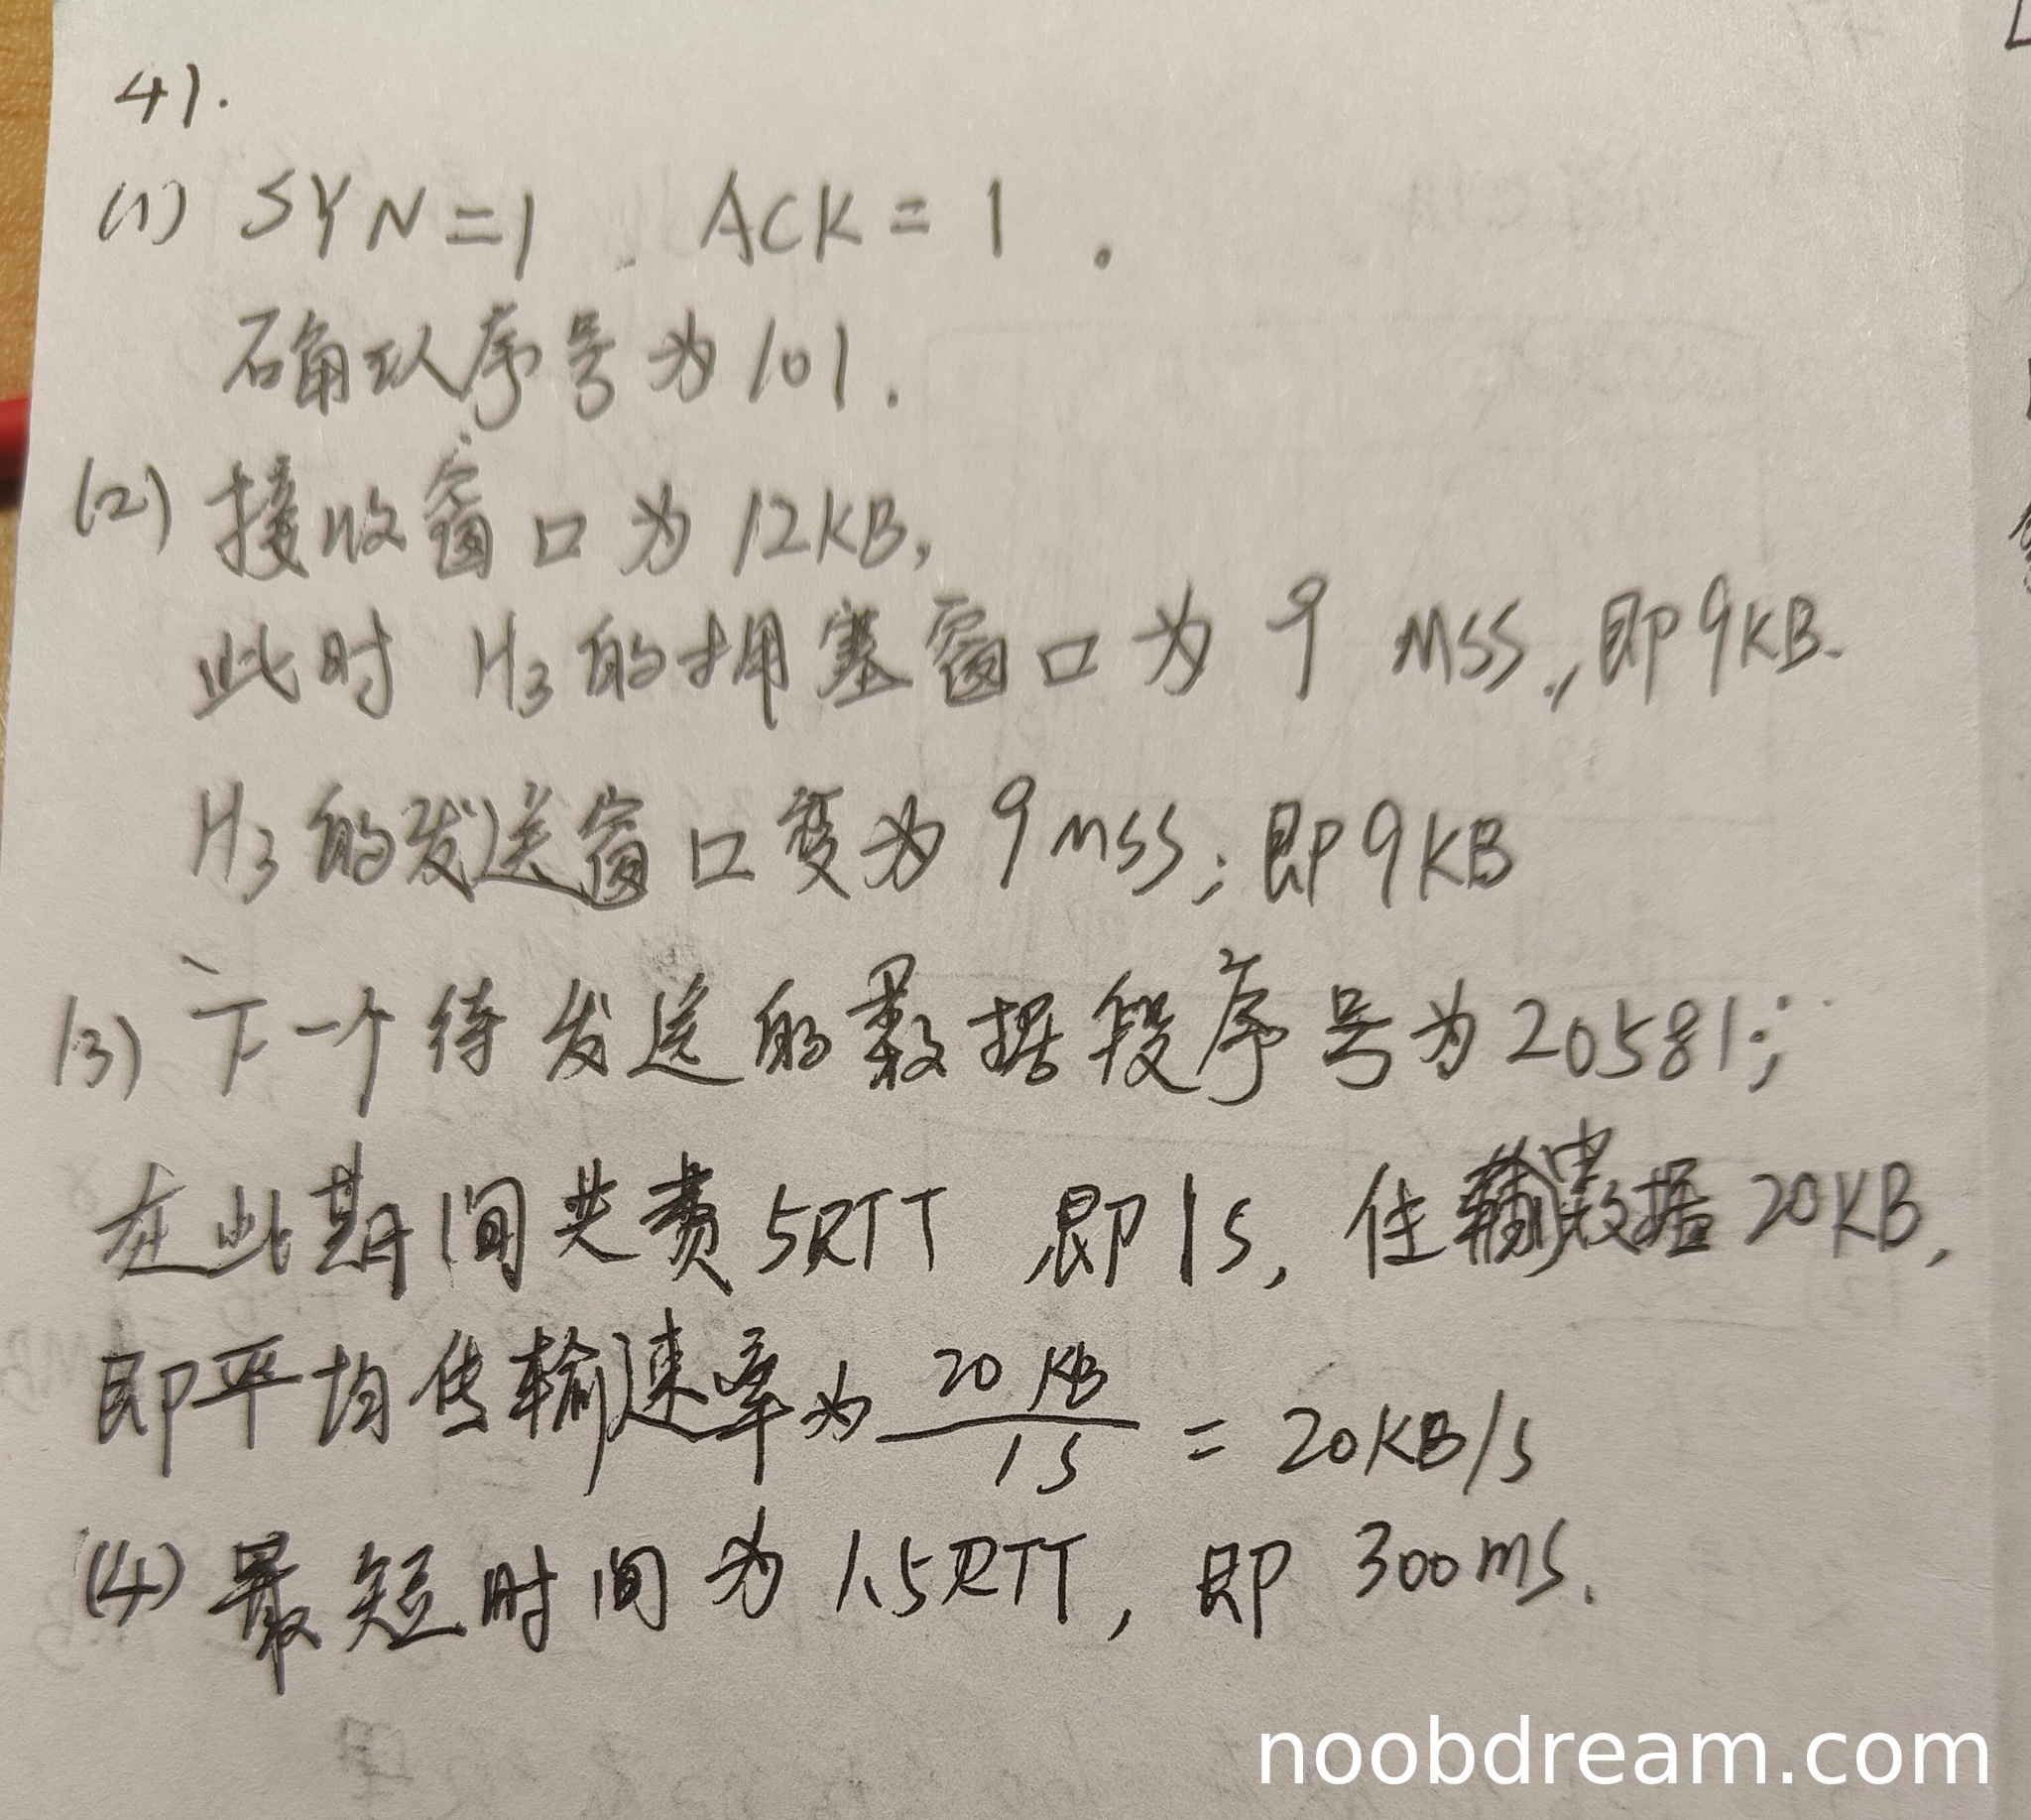 41.
(1) SYN=1 ACK=1.
确认序号为101.
(2) 接收窗口为12KB,
此时 H3的拥塞窗口为 9 MSS,即9KB.
H3的发送窗口变为 9MSS;即9KB
(3) 下一个待发送的数据段序号为20581;
在此期间共费5RTT 即1s, 传输数据20KB,
即平均传输速率为 20KB/1s = 20KB/s
(4) 最短时间为1.5RTT, 即 300ms.
noobdream.com